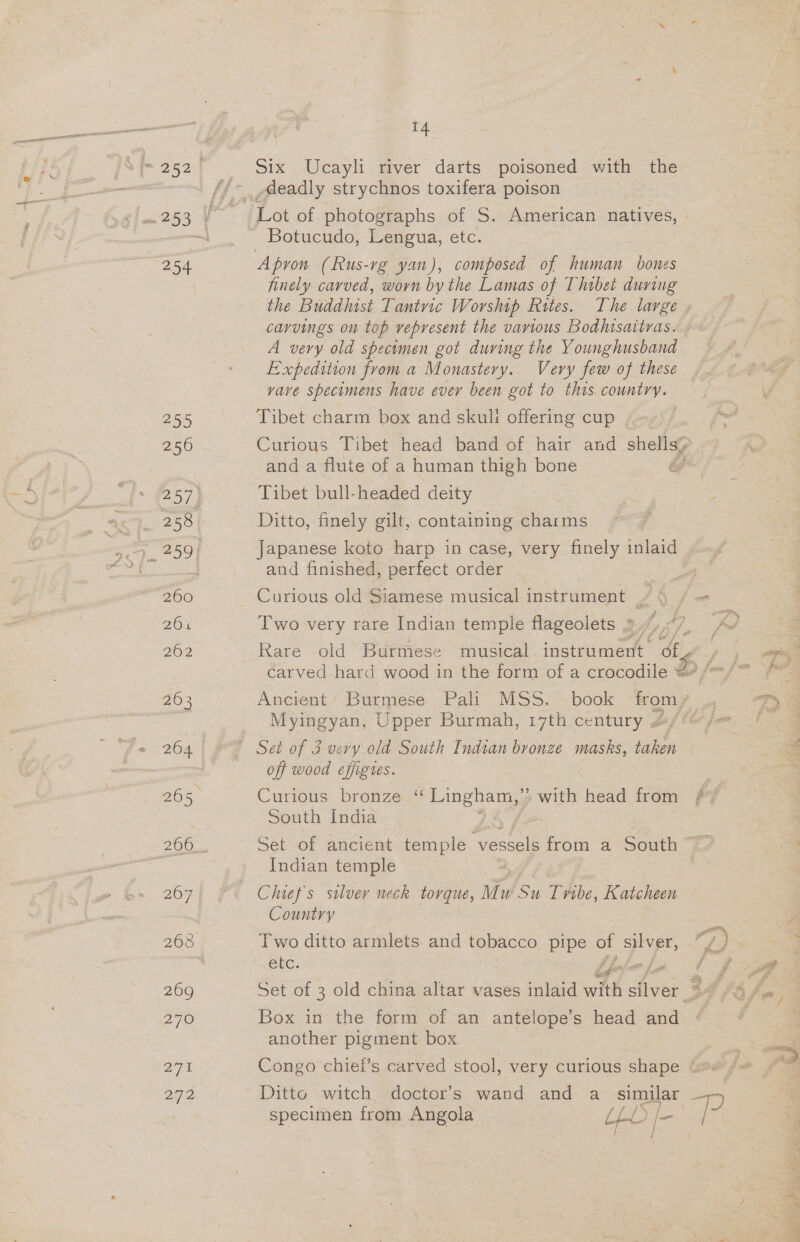 14
252 Six Ucayli river darts poisoned with the
deadly strychnos toxifera poison
253 Lot of photographs of S. American natives,
Botucudo, Lengua, etc.
254 Apron (Rus-rg yan), composed of human bones
finely carved, worn by the Lamas of Thibet during
the Buddhist Tantric Worship Rites. The large
carvings on top represent the various Bodhisaitras.
A very old specimen got during the Younghusband
Expedition from a Monastery. Very few of these
rare specimens have ever been got to this country.
255 Tibet charm box and skull offering cup
256 Curious Tibet head band of hair and shells,
and a flute of a human thigh bone
257 Tibet bull-headed deity
258 Ditto, finely gilt, containing charms
259 Japanese koto harp in case, very finely inlaid
and finished, perfect order
260 Curious old Siamese musical instrument
261 Two very rare Indian temple flageolets
262 Rare old Burmese musical instrument of
carved hard wood in the form of a crocodile
263 Ancient Burmese Pali MSS. book from
Myingyan, Upper Burmah, 17th century
264 Set of 3 very old South Indian bronze masks, taken
off wood effigies.
265 Curious bronze “Lingham,” with head from
South India
266 Set of ancient temple vessels from a South
Indian temple
267 Chief's silver neck torque, Mu Su Tribe, Katcheen
Country
268 Two ditto armlets and tobacco pipe of silver,
etc.
269 Set of 3 old china altar vases inlaid with silver
270 Box in the form of an antelope's head and
another pigment box
271 Congo chief's carved stool, very curious shape
272 Ditto witch doctor's wand and a similar
specimen from Angola